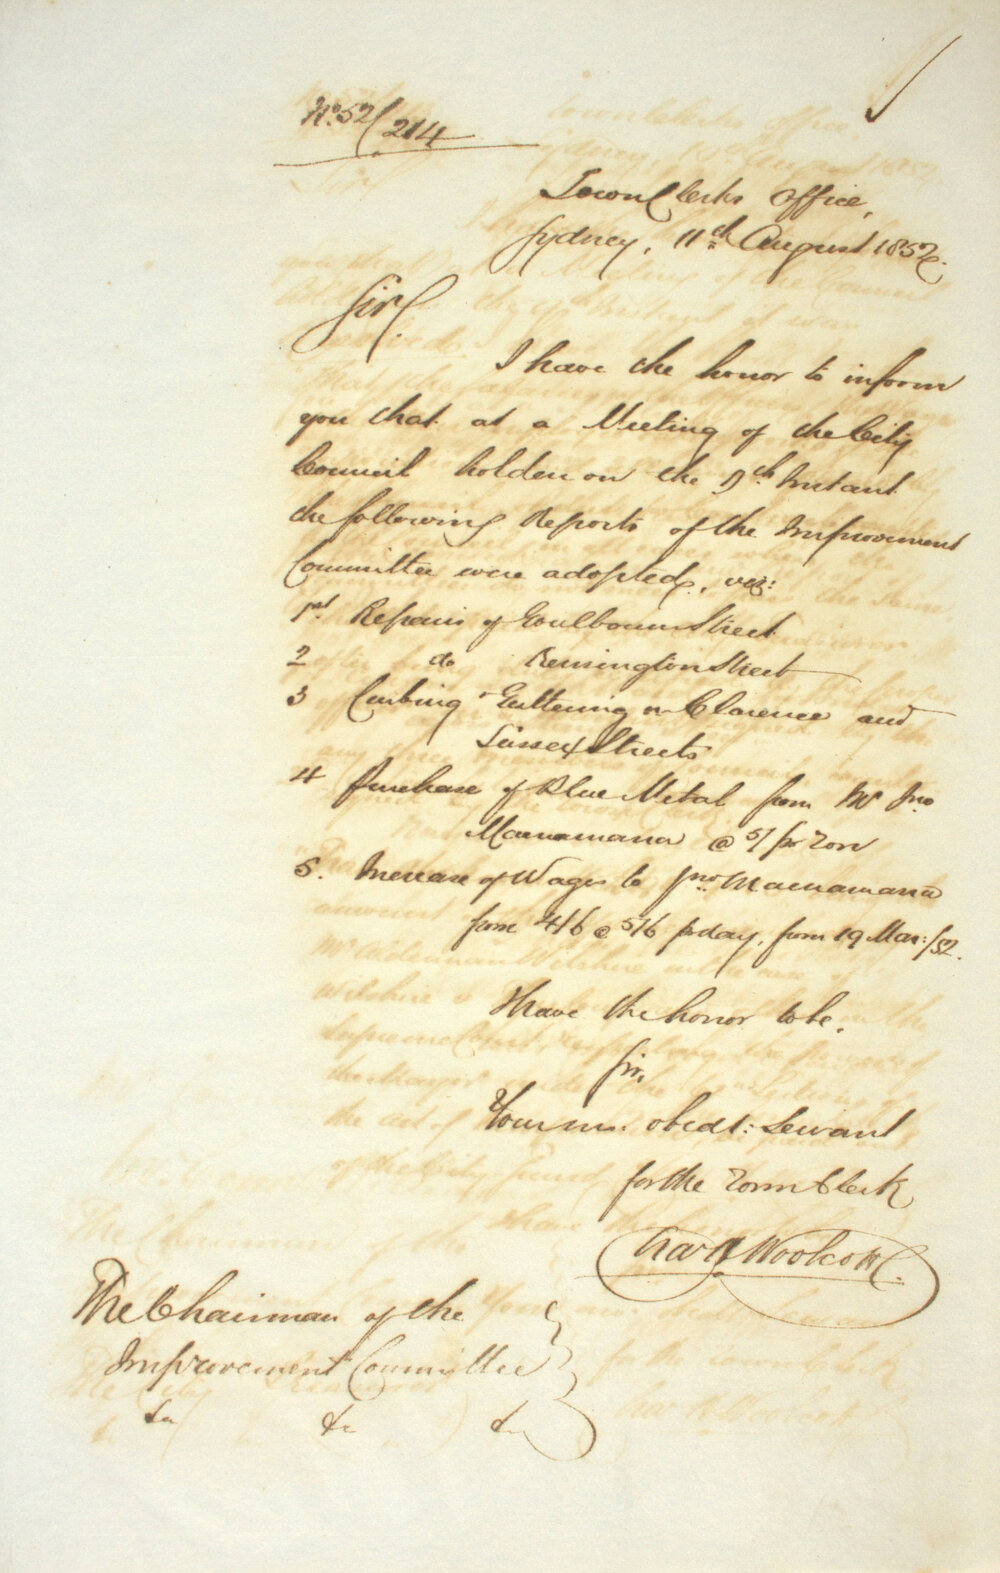 No. 52/214
Town Clerks Office,
Sydney, 11th August 1852.
Sir,
I have the honor to inform
you that at a Meeting of the City
Council holden on the 9th Instant
the following Reports of the Improvement
Committee were adopted, viz:
1st Repairs of Goulburn Street
2 do Kensington Street
3 Curbing & Guttering in Clarence and
Sussex Streets
4 Purchase of Blue Metal from Mr Jno
Macnamara @ 5/ pr Ton
5. Increase of Wages to Jno Macnamara
from 4/6 @ 5/6 pr day, from 19 Mar:/52.
I have the honor to be,
Sir,
Your mo: obedt: Servant
for the Town Clerk
Chas H Woolcott
The Chairman of the
Improvement Committee
&c &c &c